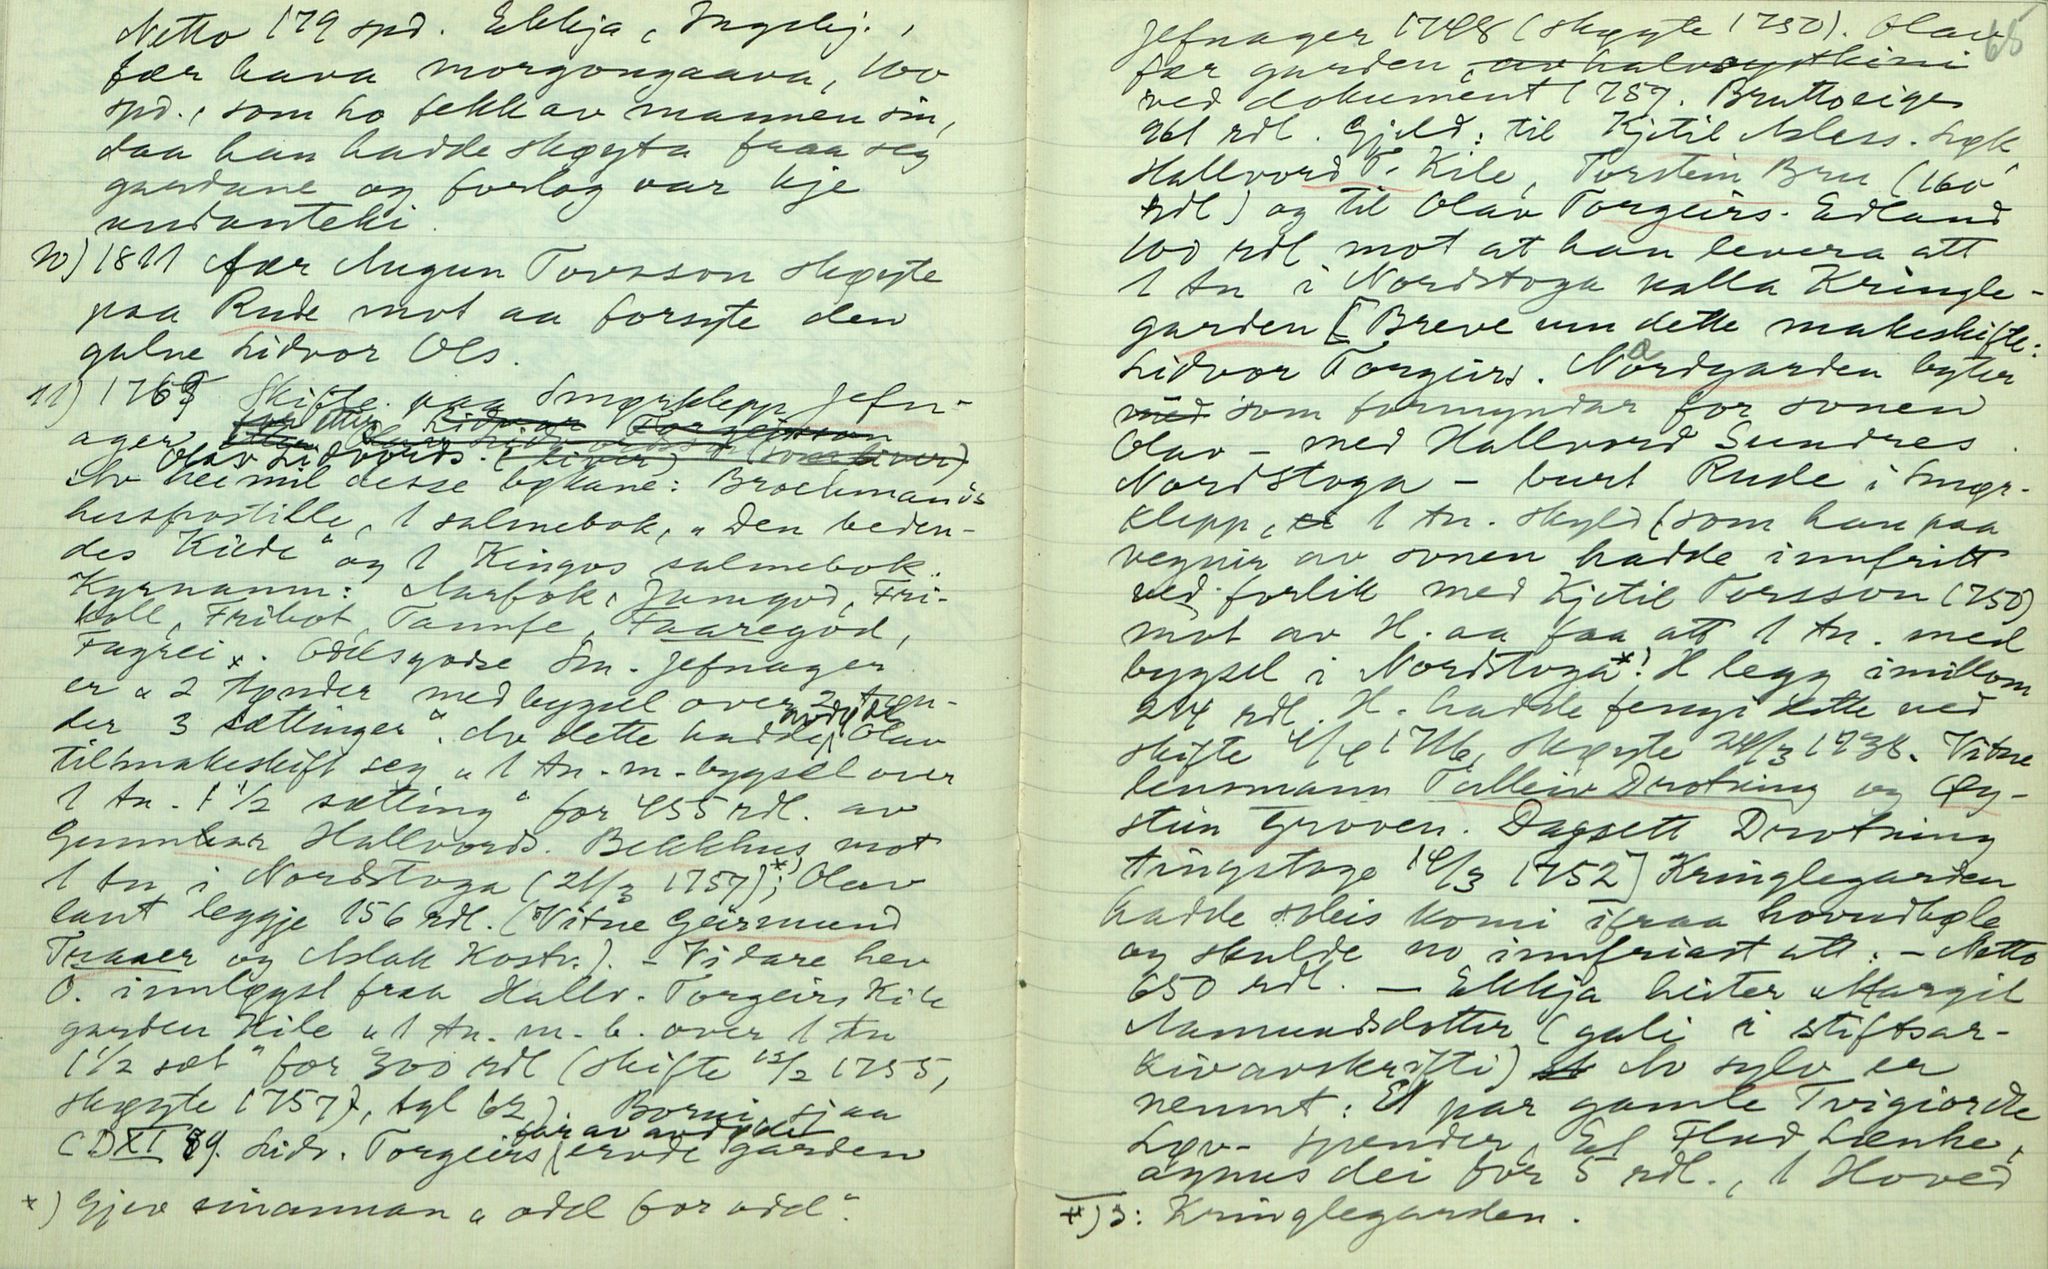 Netto 179 spd. Ekkja, Ingebj.,
fær hava morgongaava, 100
spd., som ho fekk av mannen sin,
daa han hadde skøyta fraa seg
gardane og forlog var kje
undanteki.
10) 1811 fær Augun Torsson skøyte
paa Rude mot aa forsyte den
galne Lidvor Ols.
11) 1769 Skifte paa Smørklepp Jefn-
ager
Olav Lidvords.
Av heimil desse bøkane: Brochmanns
huspostille, 1 salmebok, „Den beden-
des Kiede“ og 1 Kingos salmebok.
Kyrnamn: Narfok, Jamgod, Fri-
koll, Fribot, Tamfe, Faaregod,
Fagrei x. Odelsgodse Sm. Jefnager
er „2 tynder med bygsel over 2 tyn-
der 3 sættinger“. Av dette hadde Olav
tilmakeskift seg „1 tn. m. bygsel over
1 tn. 1 1/2 sætting“ for 455 rdl. av
Gunnar Hallvords. Bekkhus mot
1 tn i Nordstoga (21/3 1757)*); Olav
laut leggje 156 rdl. (Vitne Geirmund
Traaer og Aslak Kostv.). – Vidare hev
O. innløyst fraa Hallv. Torgeirs Kile
garden Kile „1 tn. m. b. over 1 tn
1 1/2 sæt“ for 300 rdl (skifte 15/2 1755,
skøyte 1757), tgl 62). Borni, sjaa
CDXI 89. Lidv. Torgeirs ervde garden
*) Gjev einannan „odel for odel“.
68
Jefnager 1748 (skøyte 1750). Olav
fær garden
ved dokument 1757. Bruttoeige
961 rdl. Gjeld: til Kjetil Aslers. Løk,
Hallvord T. Kile, Torstein Bru (160
rdl) og til Olav Torgeirs. Edland
100 rdl mot at han levera att
1 tn i Nordstoga kalla Kringle-
garden [Breve um dette makeskifte:
Lidvor Torgeirs. Nordgarden byter
som formyndar for sonen
Olav – med Hallvord Sundres
Nordstoga – burt Rude i Smør-
klepp, 1 tn. skyld (som han paa
vegnir av sonen hadde innfritt
ved forlik med Kjetil Torsson 1750)
mot av H. aa faa att 1 tn. med
bygsel i Nordstoga*). H legg imillom
214 rdl. H. hadde fengi dette ved
skifte 4/4 1716, skøyte 24/3 1738. Vitne
lensmann Talleiv Drotning og Øy-
stein Groven. Dagsett Drotning
tingstoge 14/3 1752] Kringlegarden
hadde soleis komi ifraa hovudbøle
og skulde no innfriast att. – Netto
650 rdl. – Ekkja heiter „Margit
Aamundsdotter (gali i stiftsar-
kivavskrifti) Av sylv er
nemnt: Et par gamle Tvigiorde
Løv-spender, Et Flad Lænke,
agnus dei for 5 rdl., 1 Hoved
*) ɔ: Kringlegarden.